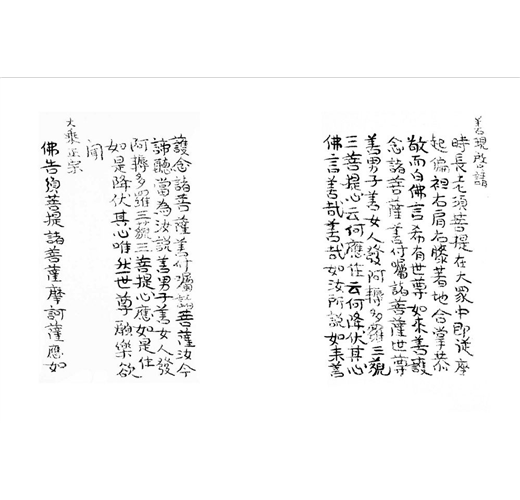 善現啓請
時長老須菩提在大眾中即從座
起偏袒右肩右膝著地合掌恭
敬而白佛言希有世尊如來善護
念諸菩薩善付囑諸菩薩世尊
善男子善女人發阿耨多羅三藐
三菩提心云何應住云何降伏其心
佛言善哉善哉如汝所說如來善
護念諸菩薩善付囑諸菩薩汝今
諦聽當為汝說善男子善女人發
阿耨多羅三藐三菩提心應如是住
如是降伏其心唯然世尊願樂欲
聞
大乘正宗
佛告須菩提諸菩薩摩訶薩應如